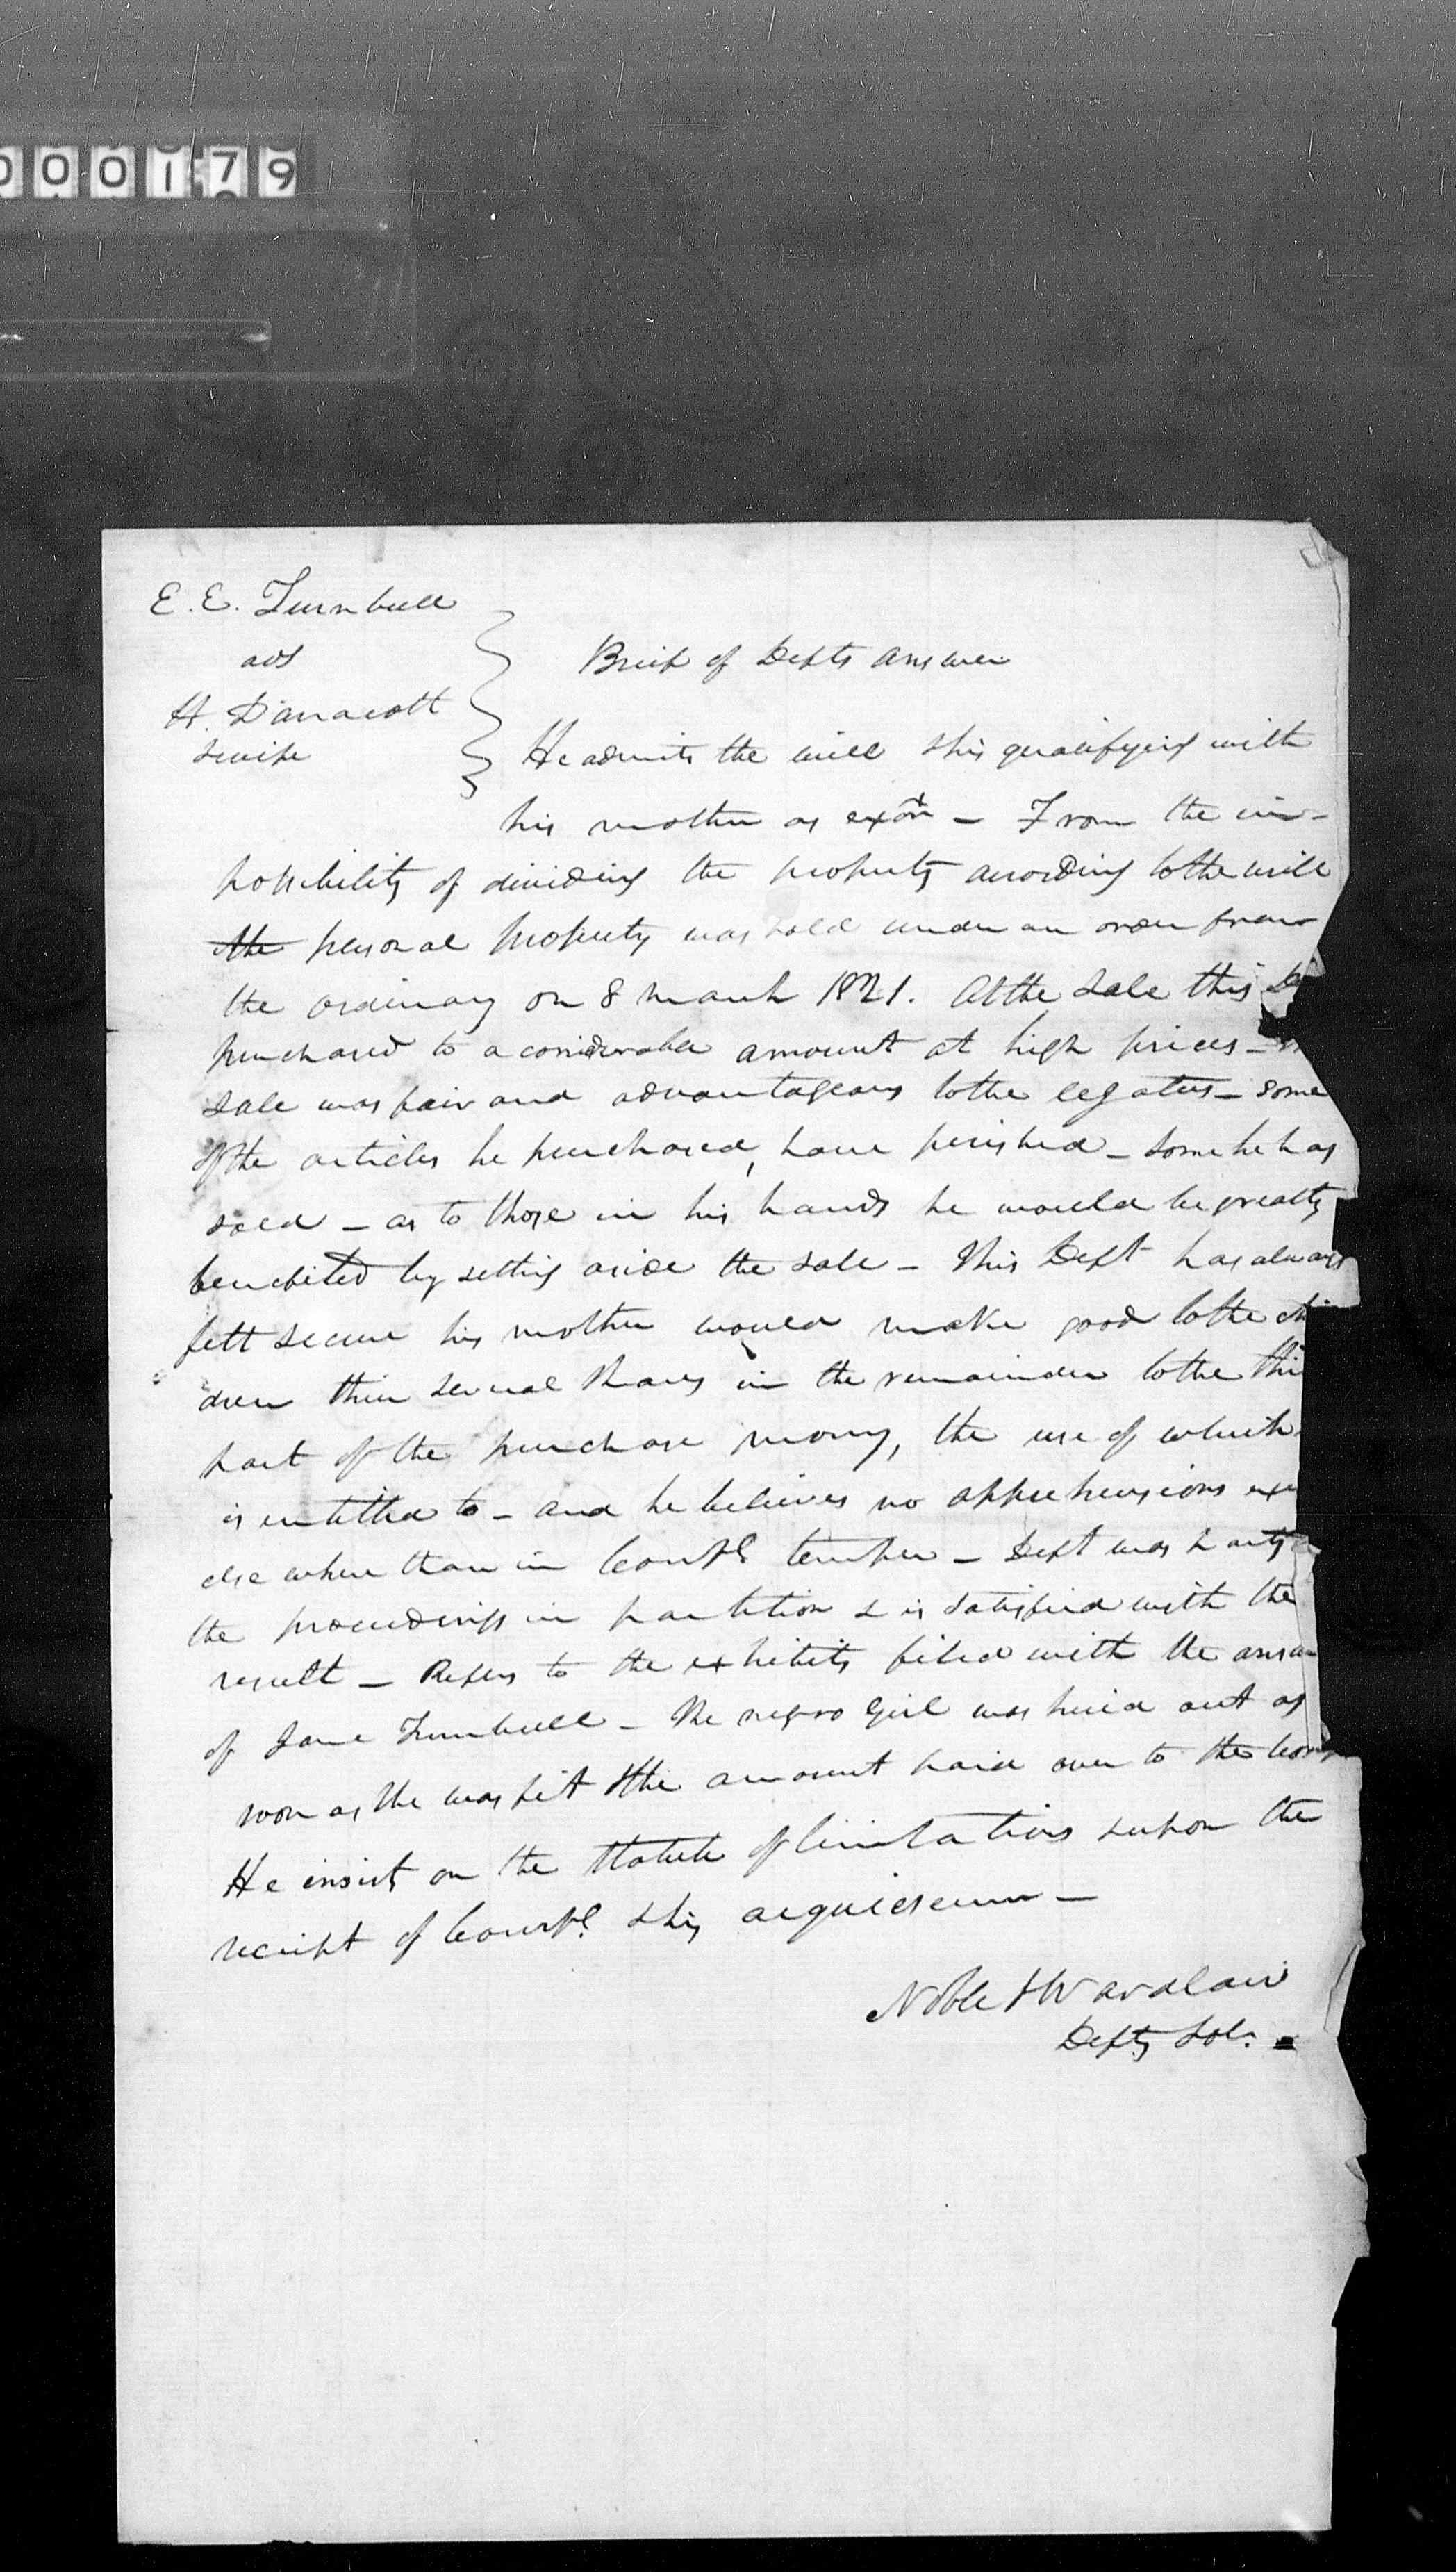 000179
E. E. Turnbull
ads
H. Darracott
& wife
Brief of Defts answer
He admits the will & his qualifying with
his mother as exor – From the im-
possibility of dividing the property according to the will
the personal property was sold under an order from
the ordinary on 8 March 1821. At the sale this De
purchased to a considerable amount at high prices –
sale was fair and advantageous to the legatees – some
of the articles he purchased, have perished – some he has
sold – as to those in his hands he would be greatly
benefited by setting aside the sale – This Deft has always
felt secure his mother would make good to the chi
dren their several shares in the remainder to the thi
part of the purchase money, the use of which
is entitled to – and he believes no apprehensions exi
else where than in Compl temper – Deft was party
the proceedings in partition & is satisfied with the
result – Refers to the exhibits filed with the answ
of Jane Turnbull – The negro girl was hired out as
soon as she was fit & the amount paid over to the
He insists on the Statute of limitations & upon the
receipt of Compl. & his acquiescence –
Noble & Wardlaw
Defts Sol.